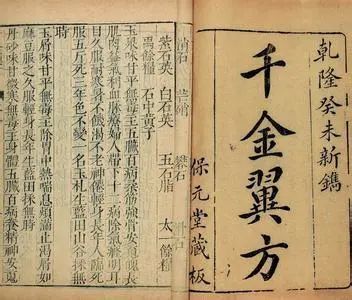 乾隆癸未新鐫
千金翼方
保元堂藏板
滑石
紫石英　白石英
禹餘糧　石中黃子
玉泉味甘平無毒主五臟百病柔筋強骨安魂魄長
肌肉益氣利血脈療婦人帶下十二病除氣癃明耳
目久服耐寒暑不饑渴不老神僊輕身長年人臨死
服五斤死三年色不變一名玉札生藍田山谷採無
時
玉屑味甘平無毒主除胃中熱喘息煩滿止渴屑如
麻豆服之久服輕身長年生藍田採無時
丹砂味甘微寒無毒主身體五臟百病養精神安魂